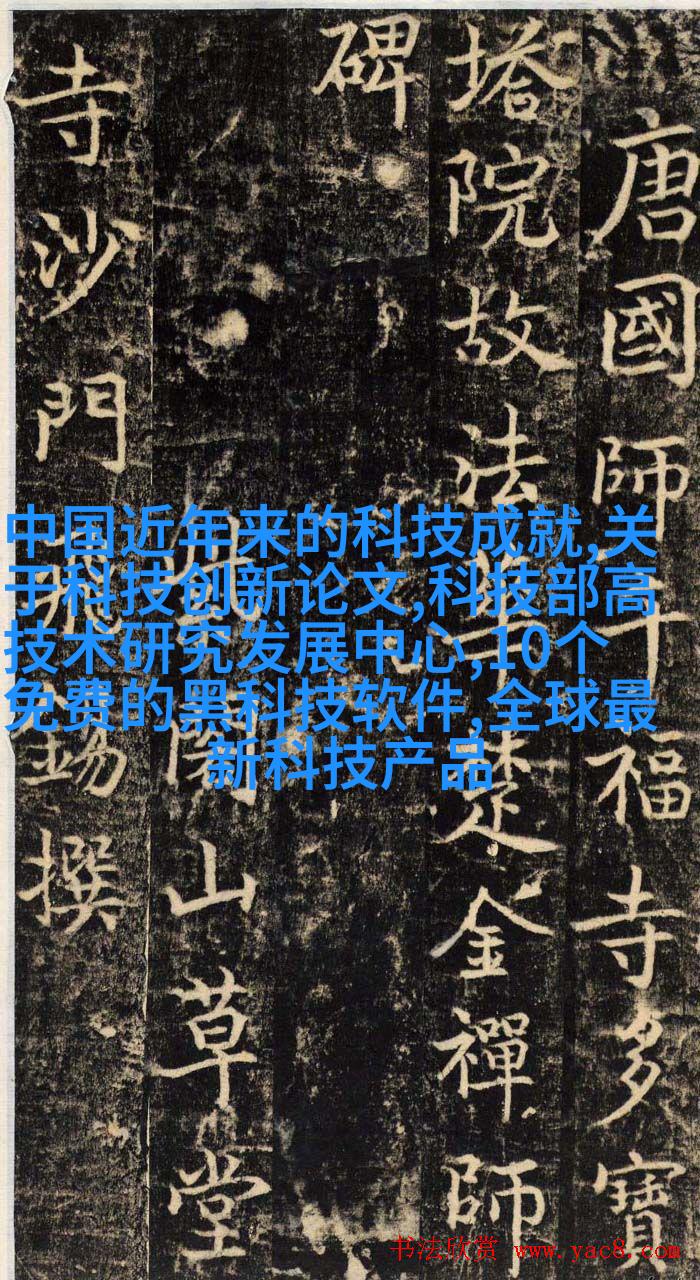 唐國師千福寺多寶
塔院故法華楚金禪師
碑
紫閣山草堂
寺沙門飛錫撰
中国近年来的科技成就,关
于科技创新论文,科技部高
技术研究发展中心,10个
免费的黑科技软件,全球最
新科技产品
书法欣赏 www.yac8.com